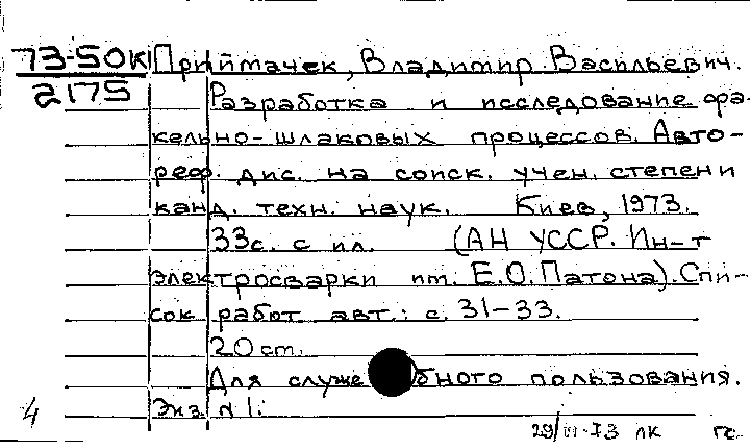 73-50к Приймачек, Владимир Васильевич.
2175
Разработка и исследование фа-
кельно-шлаковых процессов. Авто-
реф. дис. на соиск. учен. степени
канд. техн. наук. Киев, 1973.
33с. с ил. (АН УССР. Ин-т
электросварки им. Е.О. Патона). Спи-
сок работ авт.: с. 31-33.
20 см.
Для служебного пользования.
Экз. N 1:
4